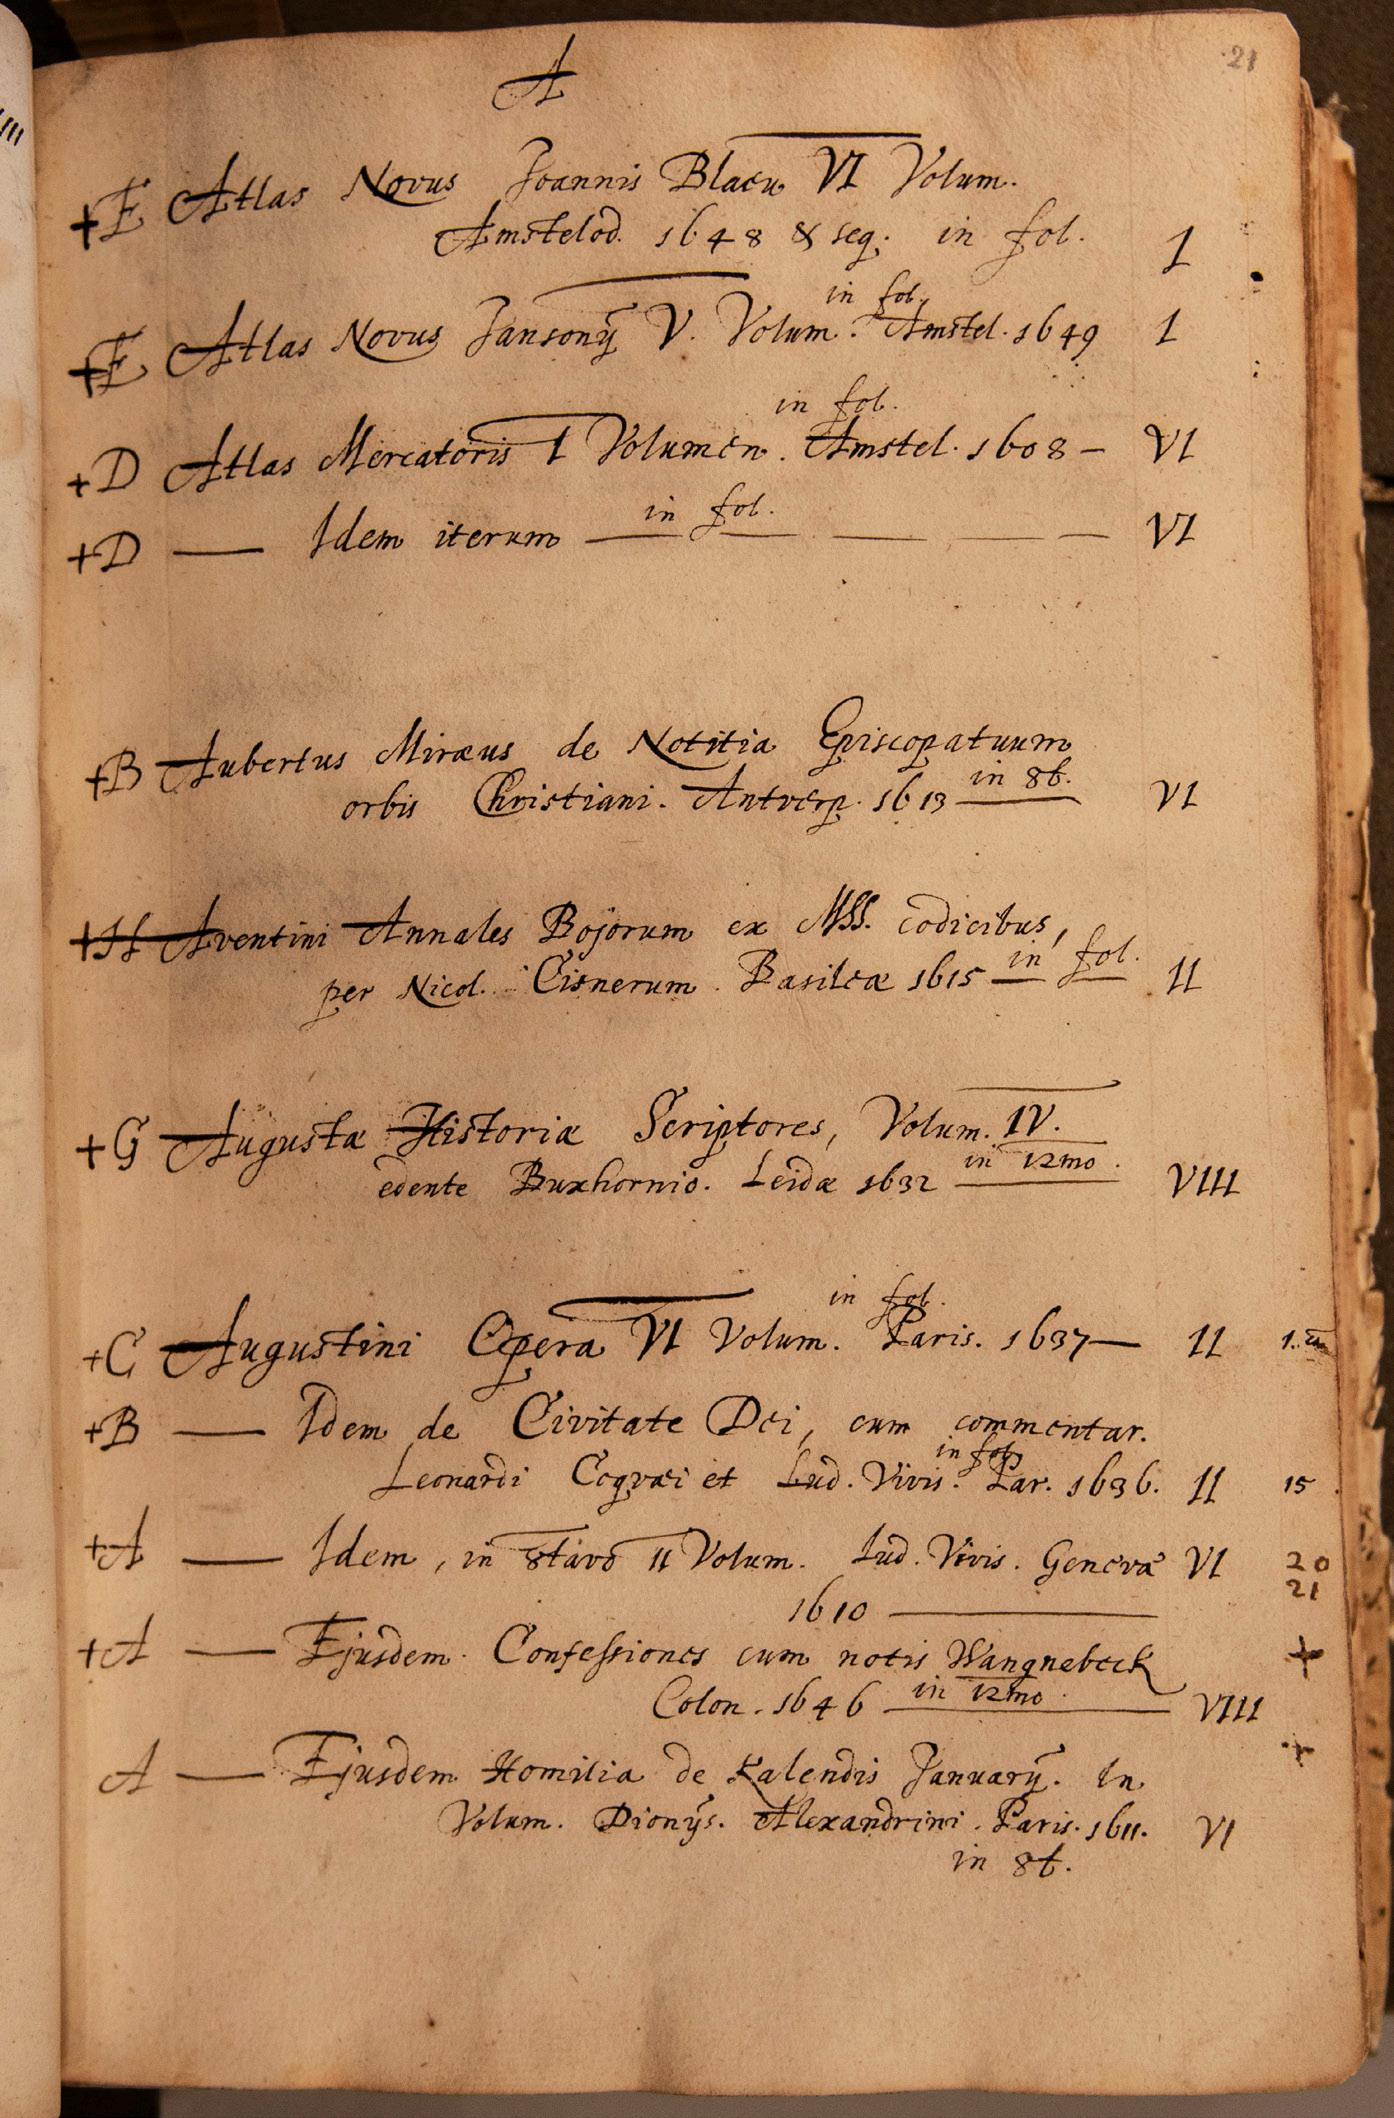 21
A
+E Atlas Novus Joannis Blaeu VI Volum.
Amstelod. 1648 & seq. in fol. I
in fol.
+E Atlas Novus Jansonÿ V. Volum. Amstel. 1649 I
in fol.
+D Atlas Mercatoris I Volumen. Amstel. 1608 – VI
+D — Idem iterum — in fol. — — — VI
+B Aubertus Miræus de Notitia Episcopatuum
orbis Christiani. Antverp. 1613 in 8t. VI
+H Aventini Annales Bojorum ex MSS. codicibus,
per Nicol. Cisnerum. Basileæ 1615 in fol. II
+G Augustæ Historiæ Scriptores, Volum. IV.
edente Buxhornio. Leidæ 1632 in 12mo. VIII
in fol.
+C Augustini Opera VI Volum. Paris. 1637 — II
+B — Idem de Civitate Dei, cum commentar.
in fol.
Leonardi Coqvæi et Lud. Vivis. Par. 1636. II 15
+A — Idem, in 8tavo II Volum. Lud. Vivis. Genevæ VI 20
21
1610 —
+A — Ejusdem. Confessiones cum notis Wangnebeck +
Colon. 1646 in 12mo. VIII
A — Ejusdem Homilia de Kalendis Januarÿ. In +
Volum. Dionÿs. Alexandrini. Paris. 1611. VI
in 8t.